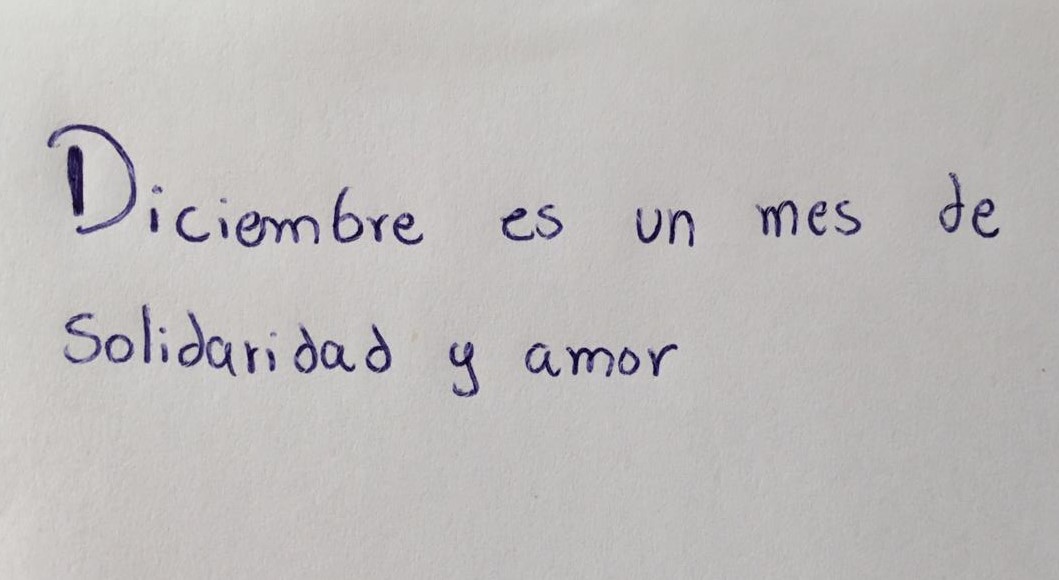 Diciembre es un mes de
Solidaridad y amor